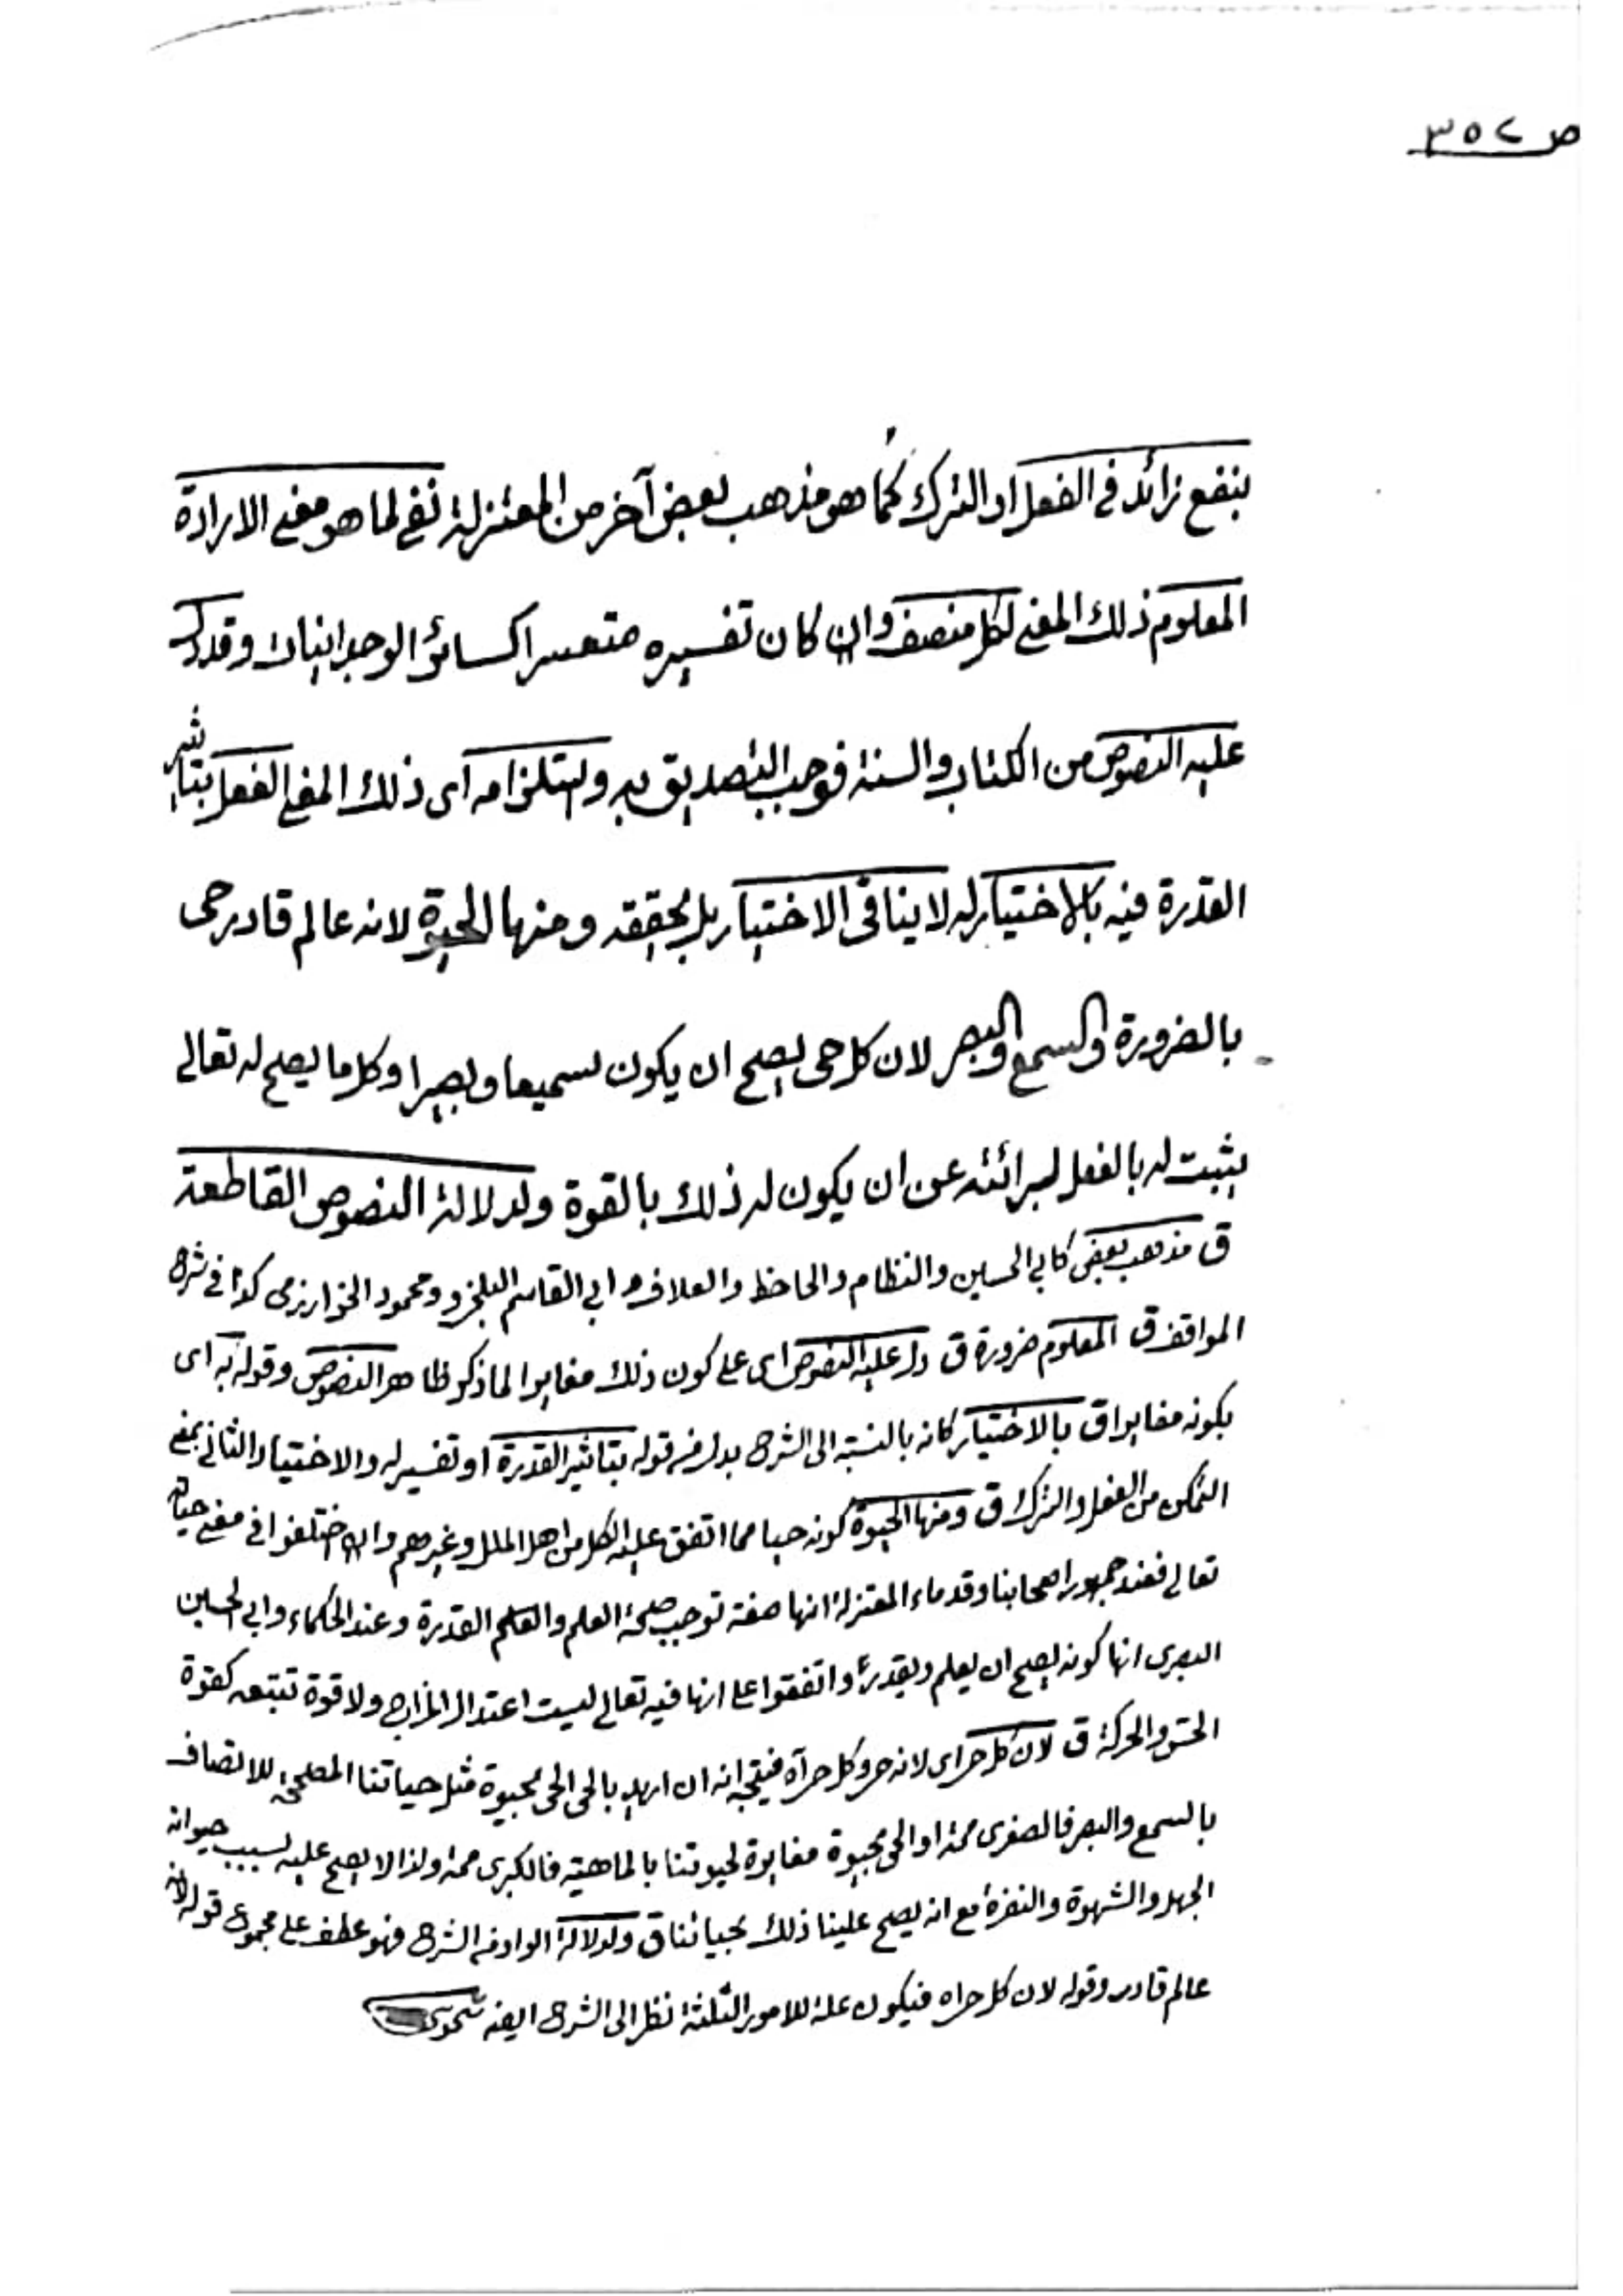 ص ٣٥٢
بنفع زائد فى الفعل او الترك كما هو مذهب بعض آخر من المعتزلة نفى لما هو معنى الارادة
المعلوم ذلك المعنى لكل منصف وان كان تفسيره متعسرا كسائر الوجدانيات وقد دل
عليه النصوص من الكتاب والسنة فوجب التصديق به واستلزامه اى ذلك المعنى الفعل بتأثير
القدرة فيه بالاختيار له لا ينافى الاختيار بل يحققه ومنها الحيوة لانه عالم قادر حى
بالضرورة والسمع والبصر لان كل حى يصح ان يكون سميعا وبصيرا وكل ما يصح له تعالى
يثبت له بالفعل لبرائته عن ان يكون له ذلك بالقوة ولدلالة النصوص القاطعة
ق مذهب بعض كابى الحسين والنظام والجاحظ والعلاف وابى القاسم البلخى ومحمود الخوارزمى كذا فى شرح
المواقف ق المعلوم ضرورة ق دل عليه النصوص اى على كون ذلك مغايرا لما ذكر ظاهر النصوص وقوله به اى
بكونه مغايرا ق بالاختيار كانه بالنسبة الى الشرح بدل من قوله بتأثير القدرة او تفسير له والاختيار الثانى بمعنى
التمكن من الفعل والترك ق ومنها الحيوة كونه حيا مما اتفق عليه الكل من اهل الملل وغيرهم وان اختلفوا فى معنى حياته
تعالى فعند جمهور اصحابنا وقدماء المعتزلة انها صفة توجب صحة العلم والقدرة وعند الحكماء وابى الحسين
البصرى انها كونه يصح ان يعلم ويقدر واتفقوا على انها فيه تعالى ليست اعتدال المزاج ولا قوة تتبعه كقوة
الحس والحركة ق لان كل حى اى لانه حى وكل حى آه فيتجه انه ان اريد بالحى الحى بحيوة مثل حياتنا المصححة للاتصاف
بالسمع والبصر فالصغرى ممة او الحى بحيوة مغايرة لحيوتنا بالماهية فالكبرى ممة ولذا لا يصح عليه بسبب حيوته
الجهل والشهوة والنفرة مع انه يصح علينا ذلك بحياتنا ق ولدلالة الواو من الشرح فهو عطف على مجموع قوله لانه
عالم قادر وقوله لان كل حى اه فيكون علة للامور الثلثة نظرا الى الشرح ايضه